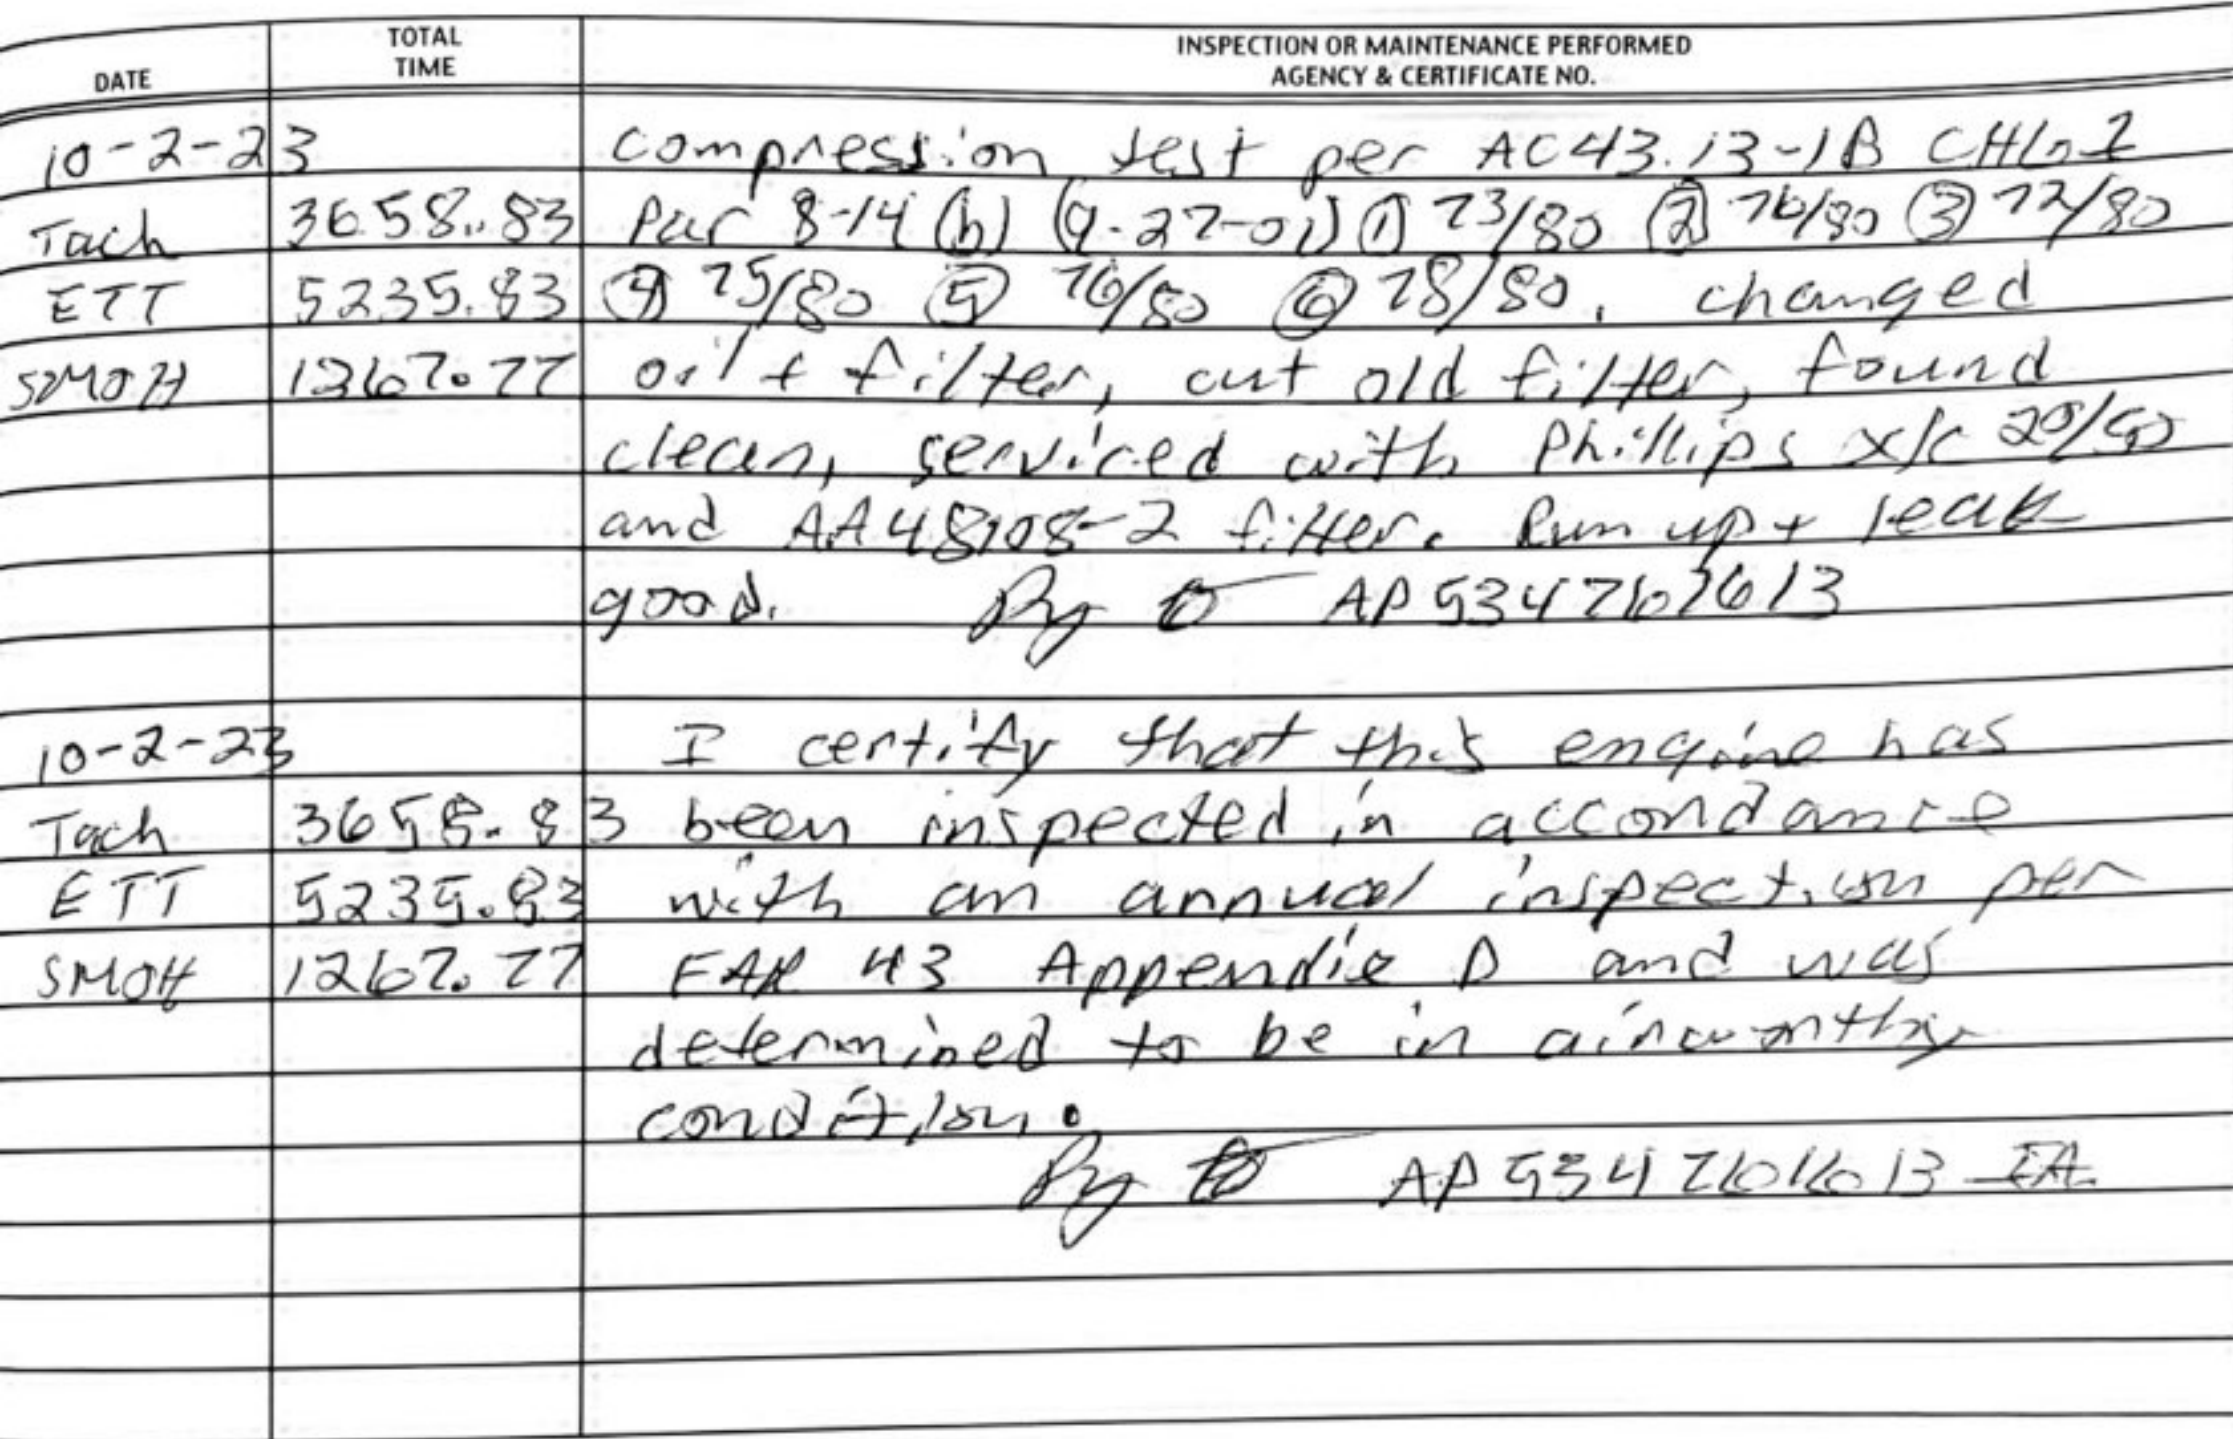 DATE TOTAL TIME INSPECTION OR MAINTENANCE PERFORMED
AGENCY & CERTIFICATE NO.
10-2-23 compression test per AC43.13-1B CHG 1
Tach 3658.83 Par 8-14 (h) (9-27-01) ① 73/80 ② 76/80 ③ 72/80
ETT 5235.83 ④ 75/80 ⑤ 76/80 ⑥ 78/80. changed
SMOH 1267.77 oil + filter, cut old filter, found
clean, serviced with Phillips x/c 20/50
and AA48108-2 filter. Run up + leak
good. AP 534767613
10-2-23 I certify that this engine has
Tach 3658.83 been inspected in accordance
ETT 5235.83 with an annual inspection per
SMOH 1267.77 FAR 43 Appendix D and was
determined to be in airworthy
condition.
AP IA